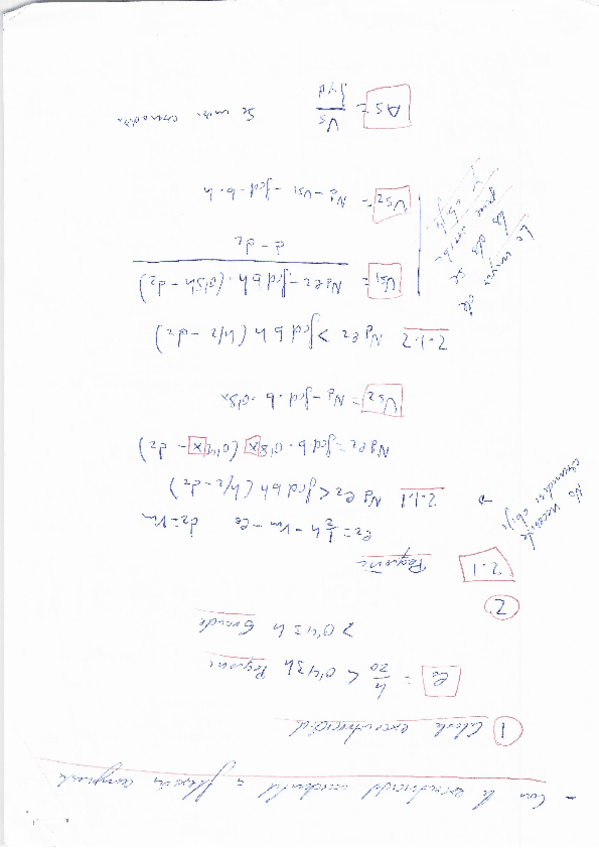 - Con la excentricidad accidental = flexión compuesta
1 Calculo excentricidad
e₀ = h/20 < 0'43h Pequeña
> 0'43h Grande
2
2.1 Pequeña
e₂ = 1/2 h - rm - e₀ d₂ = rm
2.1.1 Nd e₂ < fcd b h (h/2 - d₂) → No necesita
Nd e₂ = fcd b · 0'8x (0'4x - d₂)
Us2 = Nd - fcd · b · 0'8x
2.1.2 Nd e₂ > fcd b h (h/2 - d₂)
Us1 = Nd e₂ - fcd b h · (0'5h - d₂) / d - d₂
Us2 = Nd - Us1 - fcd · b · h
La mayor de
las dos se
As = Us / fyd Se mira